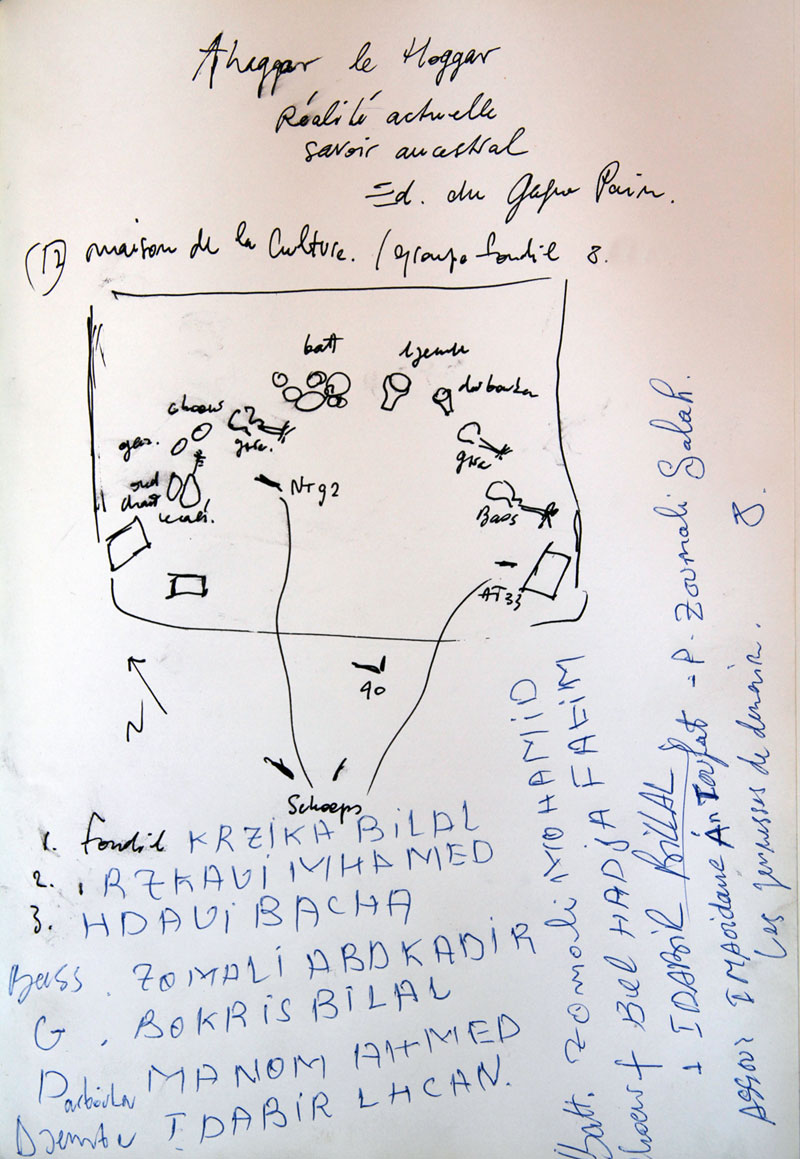 Ahaggar le Hoggar
Réalité actuelle
savoir ancestral
Ed. du
maison de la Culture. / groupe fondil 8.
batt
djembe
darbouka
choeurs
gui.
NT92
Bass
AT33
oud
N
90
Schoeps
1. fondil KRZIKA BILAL
2. RZKAVI MHAMED
3. HDAVI BACHA
Bass. ZOMALI ABDKADIR
G. BOKRIS BILAL
Darbocka MANOM AHMED
Djembe IDABIR LHCAN.
Batt. ZOMALI MOHAMID
Choeur f BEL HADJA FATIM
1 IDABIR BILLAL
P. Zoumali Salah.
IMAOIDANE
les jeunesses de demain. 8.